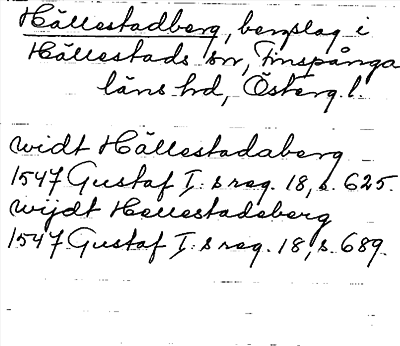 Hällestadberg, bergslag i
Hällestads sn, Finspånga
läns hd, Österg. l.
widt Hällestadaberg
1547 Gustaf I:s reg. 18, s. 625.
wijdt Hellestadeberg
1547 Gustaf I:s reg. 18, s. 689.